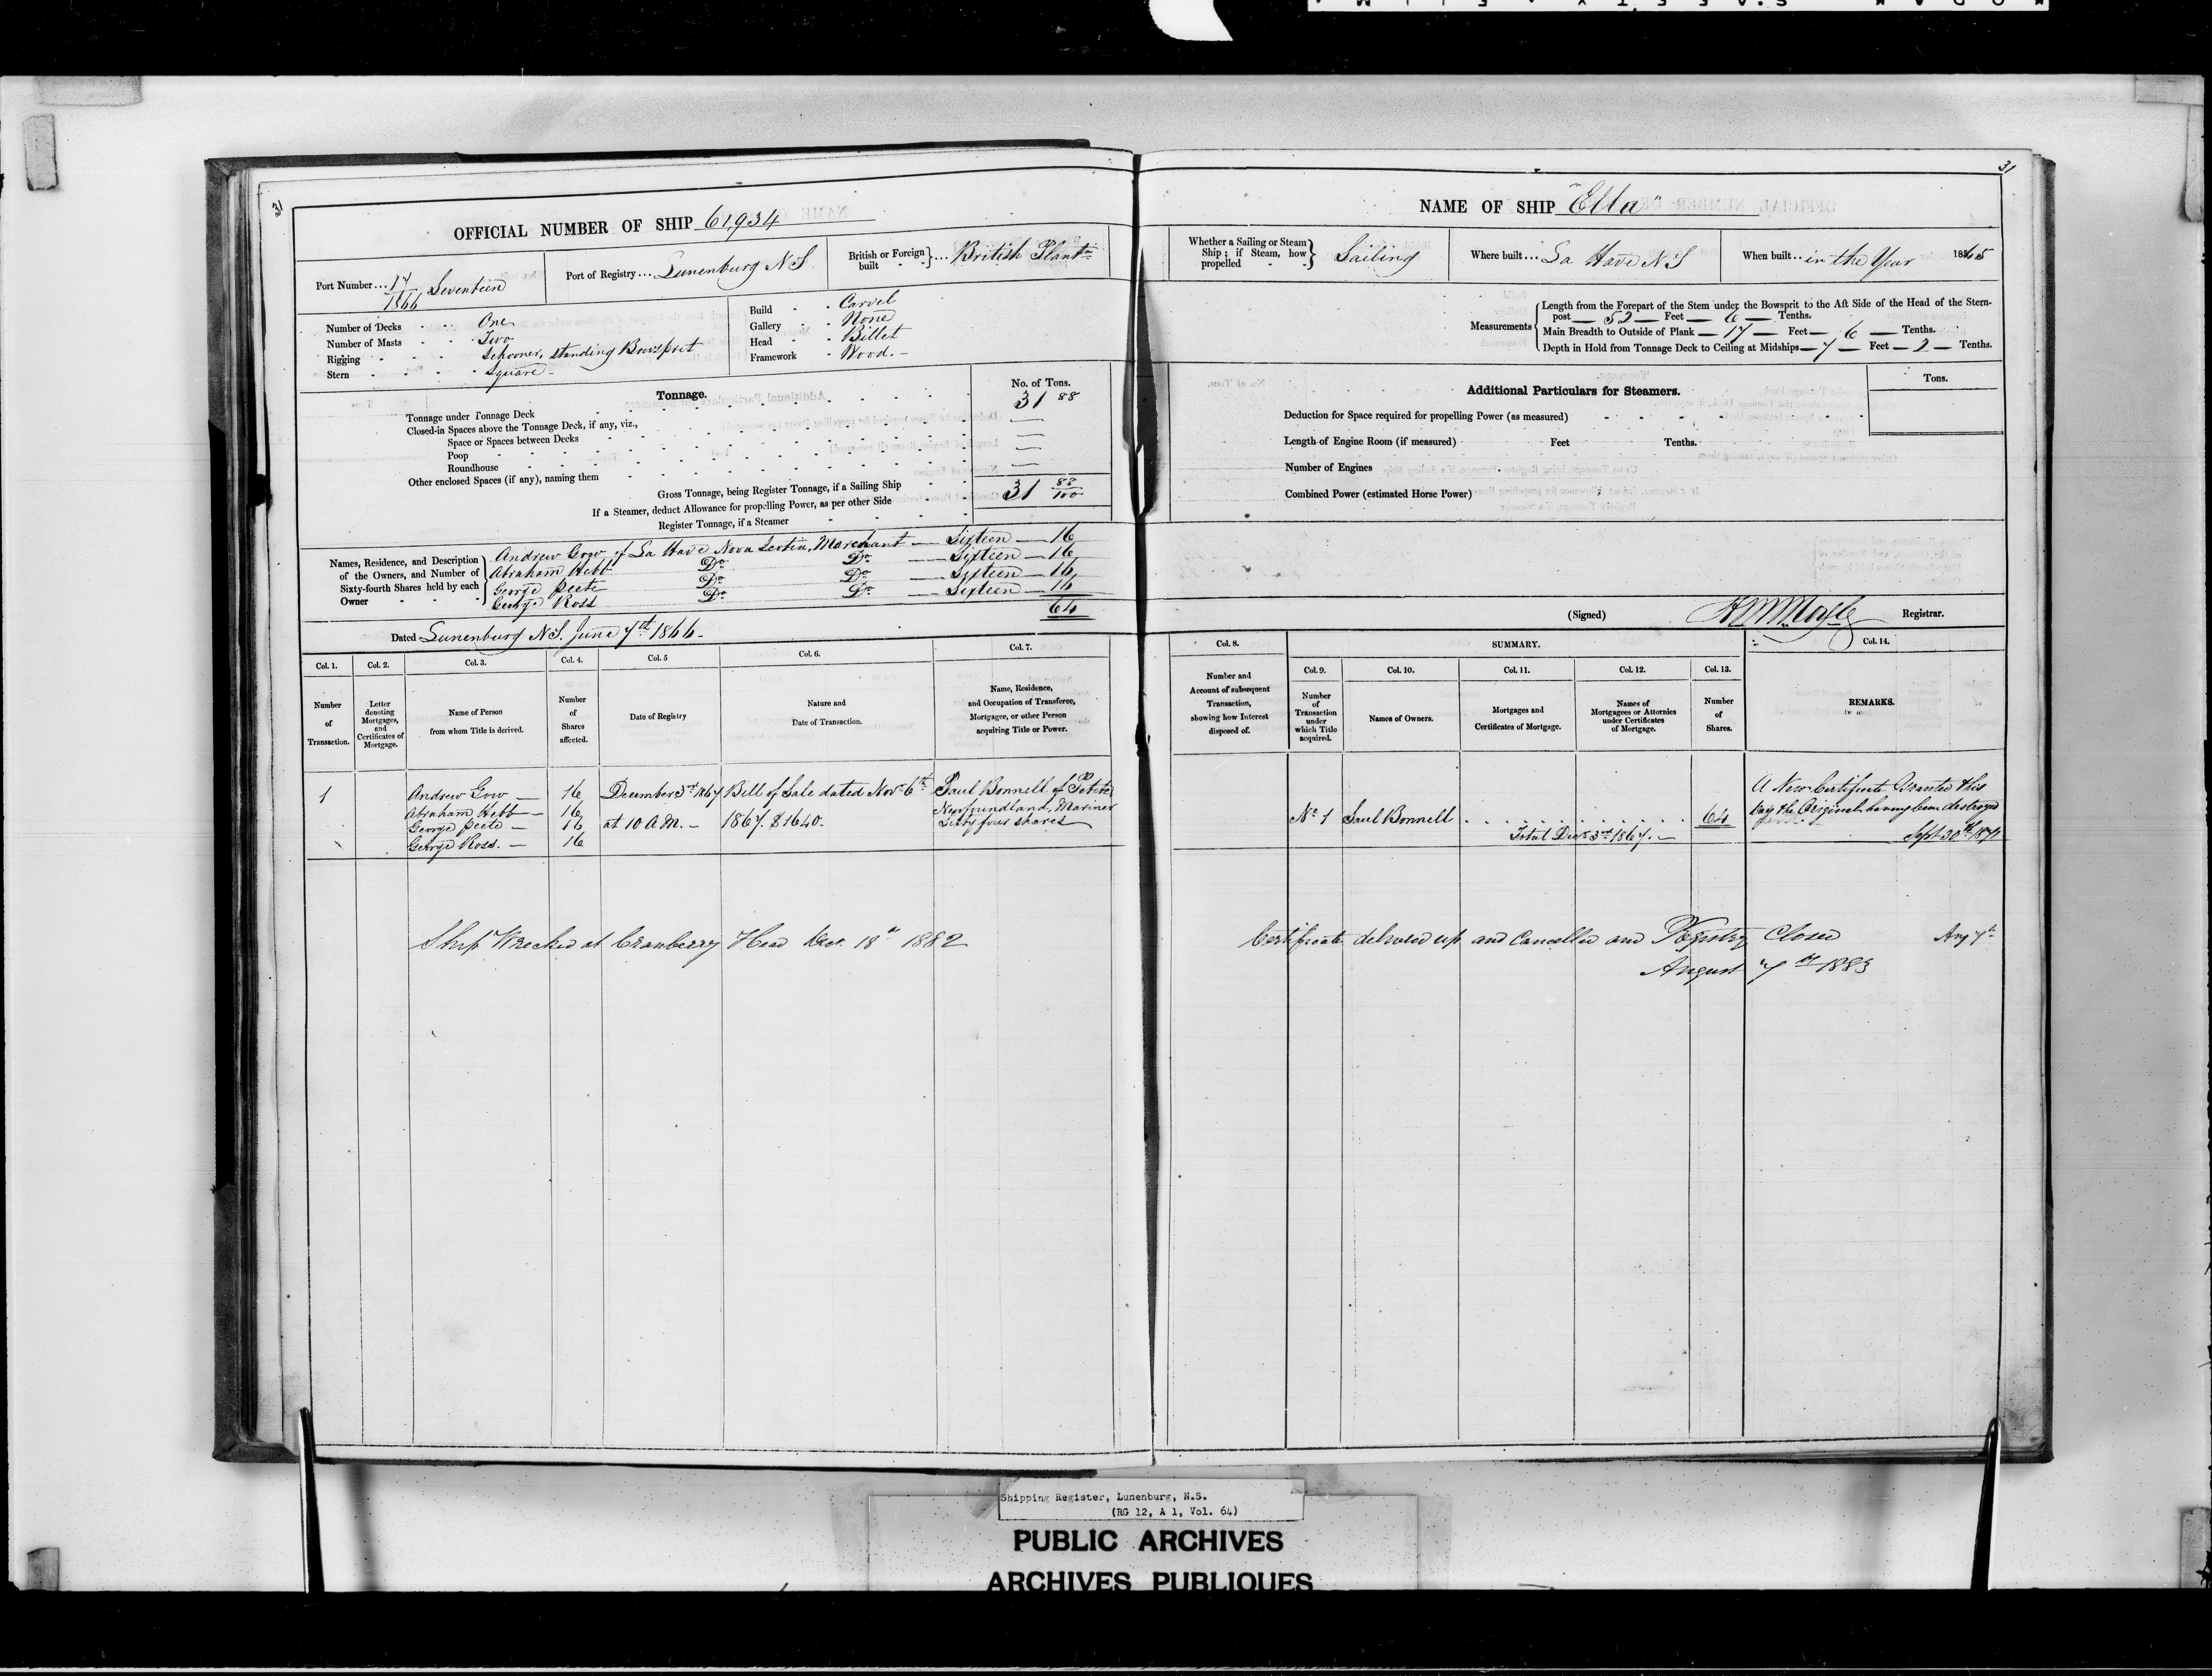 31
OFFICIAL NUMBER OF SHIP 61,934
Port Number... 17/1866 Seventeen
Port of Registry... Lunenburg N S
British or Foreign built } ... British Plantn
Number of Decks One
Number of Masts Two
Rigging Schooner, standing Bowsprit
Stern Square
Build Carvel
Gallery None
Head Billet
Framework Wood.
Tonnage.
No. of Tons.
Tonnage under Tonnage Deck 31 88
Closed-in Spaces above the Tonnage Deck, if any, viz.,
Space or Spaces between Decks —
Poop —
Roundhouse —
Other enclosed Spaces (if any), naming them
Gross Tonnage, being Register Tonnage, if a Sailing Ship 31 88/100
If a Steamer, deduct Allowance for propelling Power, as per other Side
Register Tonnage, if a Steamer
Names, Residence, and Description of the Owners, and Number of Sixty-fourth Shares held by each Owner
Andrew Gow of La Have Nova Scotia, Merchant — Sixteen — 16
Abraham Hebb Do Do — Sixteen — 16
George Peete Do Do — Sixteen — 16
George Ross Do Do — Sixteen — 16
64
Dated Lunenburg N S. June 7th 1866.
Col. 1. Col. 2. Col. 3. Col. 4. Col. 5 Col. 6. Col. 7.
Number of Transaction.
Letter denoting Mortgages, and Certificates of Mortgage.
Name of Person from whom Title is derived.
Number of Shares affected.
Date of Registry
Nature and Date of Transaction.
Name, Residence, and Occupation of Transferee, Mortgagee, or other Person acquiring Title or Power.
1 Andrew Gow — 16 December 3rd 1867 Bill of Sale dated Novr 6th Paul Bonnell of
Abraham Hebb — 16 Newfoundland, Mariner
George Peete — 16 at 10 A.M. — 1867. $1640. Sixty four shares
George Ross. — 16
Ship Wrecked at Cranberry Head Dec. 18th 1882
31
NAME OF SHIP "Ella"
Whether a Sailing or Steam Ship; if Steam, how propelled } Sailing
Where built... La Have N S
When built... in the Year 1865
Measurements
Length from the Forepart of the Stem under the Bowsprit to the Aft Side of the Head of the Stern-
post — 52 — Feet — 6 — Tenths.
Main Breadth to Outside of Plank — 17 — Feet — 6 — Tenths.
Depth in Hold from Tonnage Deck to Ceiling at Midships — 7 — Feet — 2 — Tenths.
Additional Particulars for Steamers.
Tons.
Deduction for Space required for propelling Power (as measured)
Length of Engine Room (if measured) Feet Tenths.
Number of Engines
Combined Power (estimated Horse Power)
(Signed) Registrar.
Col. 8. SUMMARY. Col. 14.
Col. 9. Col. 10. Col. 11. Col. 12. Col. 13.
Number and Account of subsequent Transaction, showing how Interest disposed of.
Number of Transaction under which Title acquired.
Names of Owners.
Mortgages and Certificates of Mortgage.
Names of Mortgagees or Attornies under Certificates of Mortgage.
Number of Shares.
REMARKS.
No 1 Paul Bonnell 64
Total Decr 3rd 1867. —
A New Certificate Granted this
day the Original having been destroyed
Sept 30th
Certificate delivered up and Cancelled and Registry Closed Aug 7th
August 7th 1883
Shipping Register, Lunenburg, N.S.
(RG 12, A 1, Vol. 64)
PUBLIC ARCHIVES
ARCHIVES PUBLIQUES